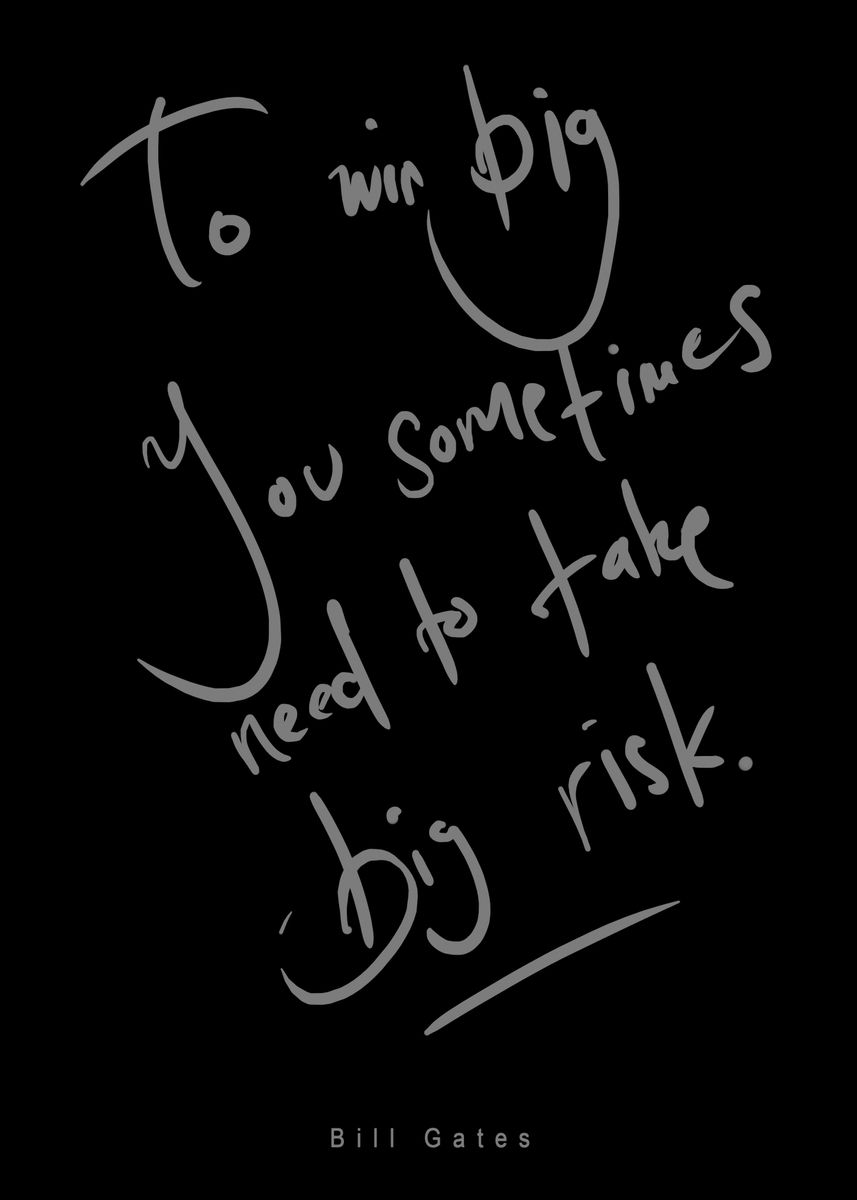 To win big
You sometimes
need to take
big risk.
Bill Gates